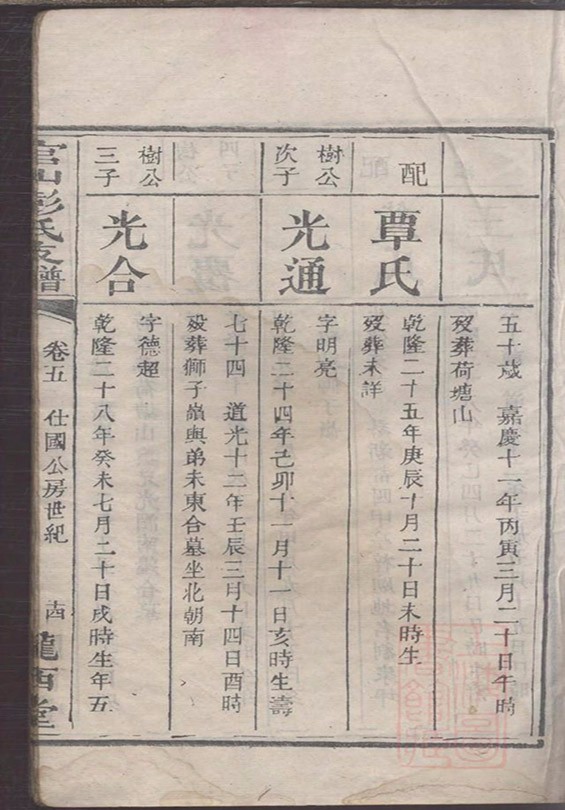 五十歲　嘉慶十一年丙寅三月二十日午時
歿葬荷塘山
配
覃氏
乾隆二十五年庚辰十月二十日未時生
歿葬未詳
樹公
次子
光通
字明亮
乾隆二十四年己卯十一月十一日亥時生壽
七十四　道光十二年壬辰三月十四日酉時
歿葬獅子嶺與弟未東合墓坐北朝南
樹公
三子
光合
字德超
乾隆二十八年癸未七月二十日戌時生年五
官山彭氏支譜
卷五　仕國公房世紀
十四
隴西堂